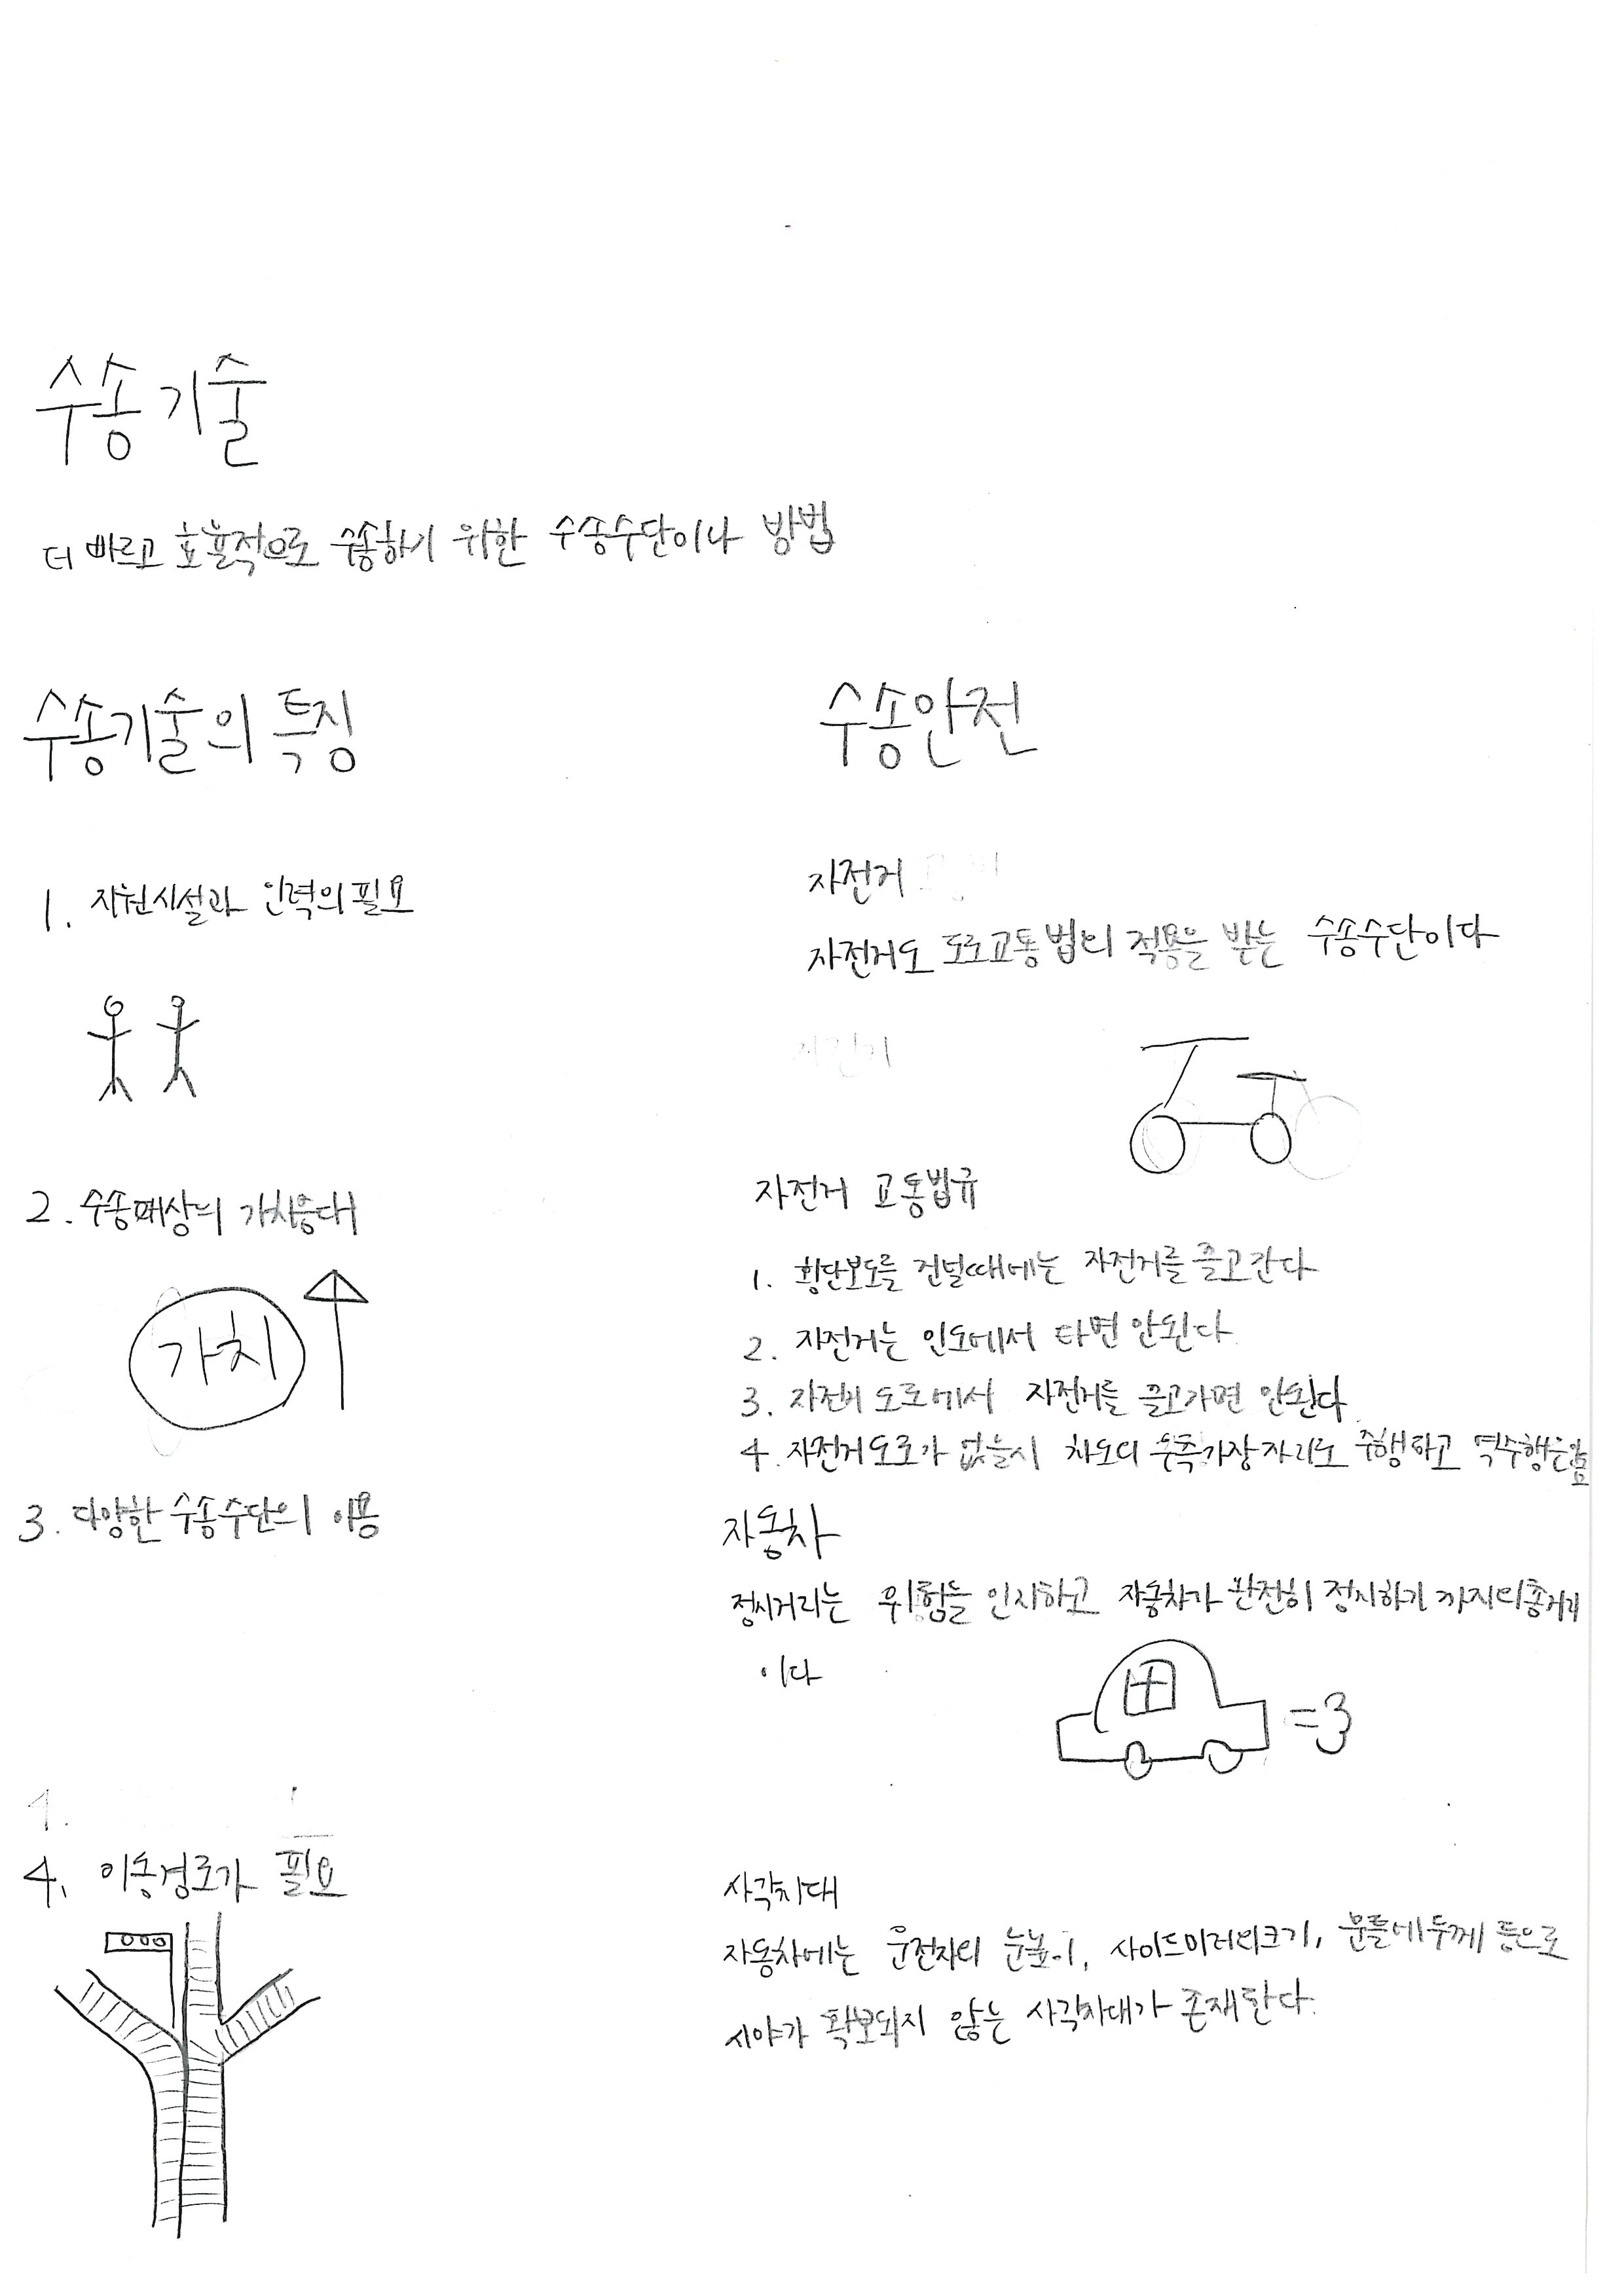 수송기술
더 빠르고 효율적으로 수송하기 위한 수송수단이나 방법
수송기술의 특징
1. 자원시설과 인력의 필요
2. 수송대상의 가치증대
가치
3. 다양한 수송수단의 이용
4. 이동경로가 필요
수송안전
자전거
자전거도 도로교통법의 적용을 받는 수송수단이다
자전거 교통법규
1. 횡단보도를 건널때에는 자전거를 끌고간다
2. 자전거는 인도에서 타면 안된다
3. 자전거 도로에서 자전거를 끌고가면 안된다
4. 자전거도로가 없을시 차도의 우측가장자리로 주행하고 역주행은
자동차
정지거리는 위험을 인지하고 자동차가 완전히 정지하기 까지의 총거리
이다
=3
사각지대
자동차에는 운전자의 눈높이, 사이드미러의크기, 문틀에두께 등으로
시야가 확보되지 않는 사각지대가 존재한다.